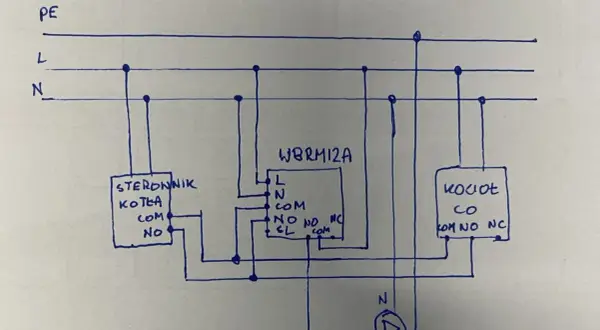 PE
L
N
WBRM12A
STEROWNIK
KOTŁA
COM
NO
L
N
COM
NO
SL
NO
COM
NC
KOCIOŁ
CO
COM NO NC
N